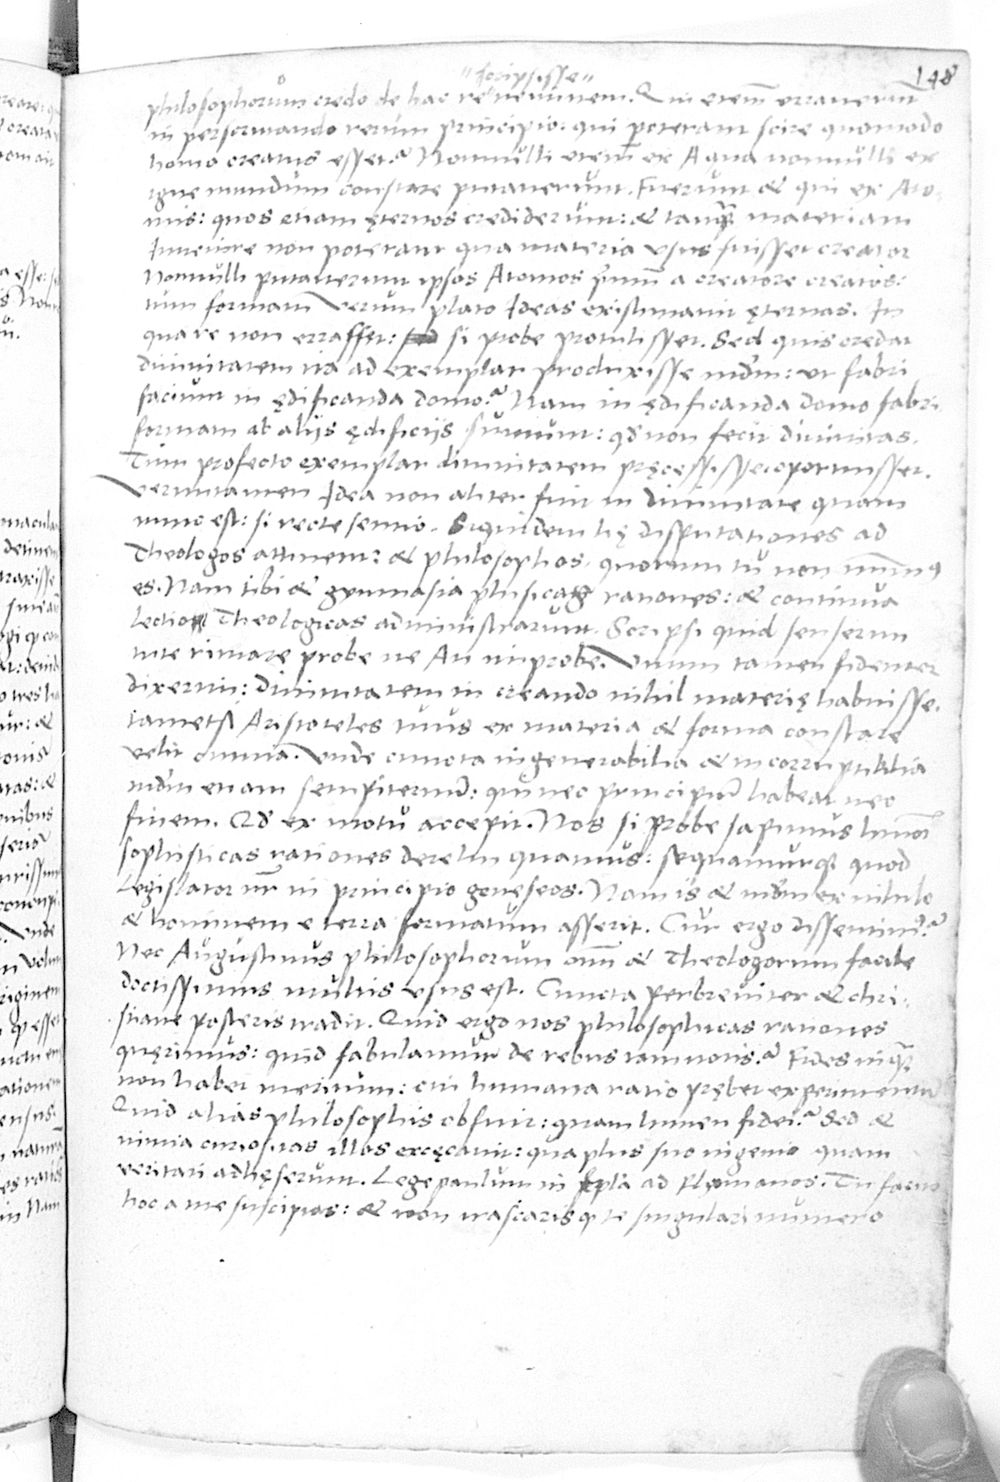 148
"scripsisse"
philosophorum credo de hac re neminem. Qui etem̄ erraverunt
in performando rerum principio: qui poterant scire quomodo
homo creatus esset? Nonnulli etem̄ ex Aqua nonnulli ex
igne mundum constare putaverunt. Fuerunt & qui ex Ato
mis: quos etiam ęternos crediderunt: & tanq̄ materiam
Invenire non poterant qua materia usus fuisset creator
Nonnulli putaverunt ipsos Atomos primū a creatore creatos:
tum formam verum plato Ideas existimavit ęternas. In
qua re non errasset: si probe protulisset. Sed quis credat
divinitatem ita ad exemplar produxisse mdm: ut fabri
faciunt in ędificanda domo? Nam in ędificanda domo fabri
formam ab aliis ędificiis sumunt: qd non fecit divinitas.
Tum profecto exemplar divinitatem pręcessisse oportuisset.
Veruntamen Idea non aliter fuit in divinitate quam
nunc est: si recte sentio. Siquidem hę disputationes ad
Theologos attinent: & philosophos. quorum tu non unus
es. Nam tibi & gymnasia phisicas rationes: & continua
lectio Theologicas administrarunt. Scripsi quid senserim
tute rimare probe ne An improbe. Unum tamen fidenter
dixerim: divinitatem in creando nihil materię habuisse.
tametsi Aristoteles tuus ex materia & forma constare
velit omnia. Unde cuncta ingenerabilia & incorruptibilia
mdm etiam sempiternū: qui nec principiū habeat nec
finem. Qd ex motu accepit. Nos si probe sapimus hmōi
sophisticas rationes derelinquamus: sequamurq̄ quod
Legislator nr̄ in principio genęseos. Nam is & mdm ex nihilo
& hominem e terra formatum asserit. Cur ergo dissentim?
Nec Augustinus philosophorum oim̄ & Theologorum facile
doctissimus multis usus est. Cuncta perbreviter & chri
stiane posteris tradit. Quid ergo nos philosophicas rationes
quęrimus: quid fabulamur de rebus tam notis? Fides inq̄
non habet meritum: cui humana ratio prębet experimentū
Quid alias philosophis obfuit: quam lumen fidei? Sed &
nimia curiositas illos excęcavit: qua plus suo ingenio quam
veritati adhęserunt. Lege paulum in epla ad Romanos. Tu
hoc a me suscipias: & non irascaris q te singulari numero